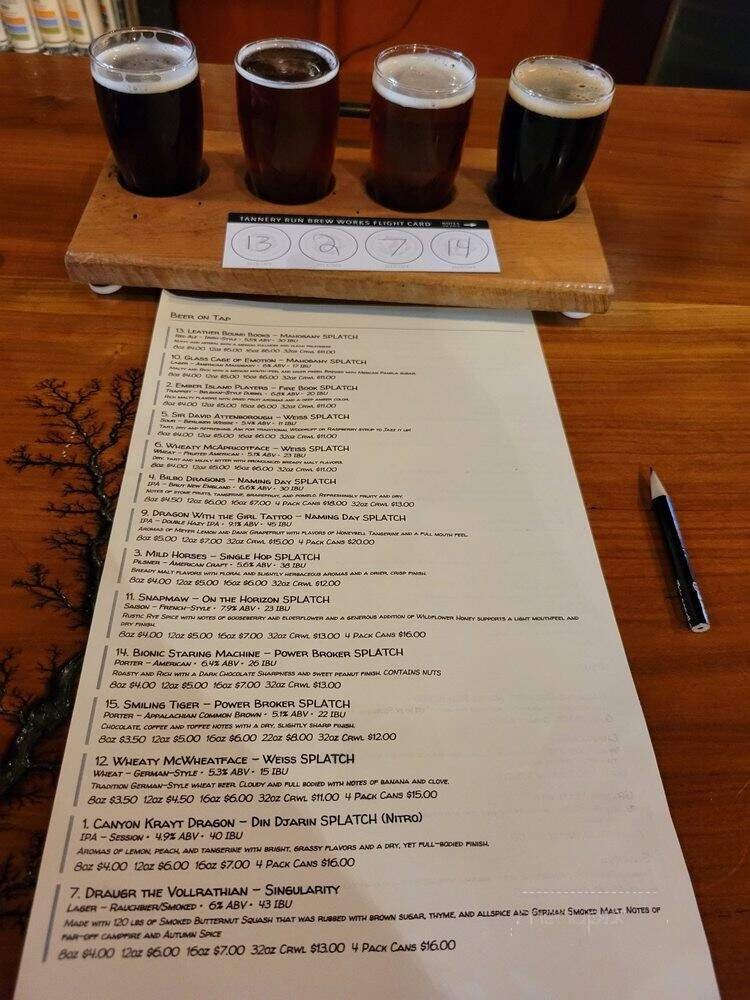 TANNERY RUN BREW WORKS FLIGHT CARD
13 2 7 14
BEER ON TAP
13. LEATHER BOUND BOOKS – MAHOGANY SPLATCH
RED ALE – IRISH-STYLE • 5.5% ABV • 30 IBU
8oz $4.00 12oz $5.00 16oz $6.00 32oz CRWL $11.00
10. GLASS CAGE OF EMOTION – MAHOGANY SPLATCH
LAGER – AMERICAN MAHOGANY • 6% ABV • 17 IBU
MALTY AND RICH WITH A MEDIUM MOUTH-FEEL AND CLEAN FINISH. BREWED WITH MEXICAN PANELA SUGAR.
8oz $4.00 12oz $5.00 16oz $6.00 32oz CRWL $11.00
2. EMBER ISLAND PLAYERS – FIRE BOOK SPLATCH
TRAPPIST – BELGIAN-STYLE DUBBEL • 6.8% ABV • 20 IBU
RICH MALTY FLAVORS WITH DRIED FRUIT AROMAS AND A DEEP AMBER COLOR.
8oz $4.00 12oz $5.00 16oz $6.00 32oz CRWL $11.00
5. SIR DAVID ATTENBOROUGH – WEISS SPLATCH
SOUR – BERLINER WEISSE • 5.4% ABV • 11 IBU
TART, DRY AND REFRESHING. ASK FOR TRADITIONAL WOODRUFF OR RASPBERRY SYRUP TO JAZZ IT UP!
8oz $4.00 12oz $5.00 16oz $6.00 32oz CRWL $11.00
6. WHEATY MCAPRICOTFACE – WEISS SPLATCH
WHEAT – FRUITED AMERICAN • 5.1% ABV • 23 IBU
DRY, TART AND MILDLY BITTER WITH PRONOUNCED BREADY MALT FLAVORS.
8oz $4.00 12oz $5.00 16oz $6.00 32oz CRWL $11.00
4. BILBO DRAGONS – NAMING DAY SPLATCH
IPA – BRUT NEW ENGLAND • 6.6% ABV • 30 IBU
NOTES OF STONE FRUITS, TANGERINE, GRAPEFRUIT, AND POMELO. REFRESHINGLY FRUITY AND DRY.
8oz $4.50 12oz $6.00 16oz $7.00 4 PACK CANS $18.00 32oz CRWL $13.00
9. DRAGON WITH THE GIRL TATTOO – NAMING DAY SPLATCH
IPA – DOUBLE HAZY IPA • 9.1% ABV • 45 IBU
AROMAS OF MEYER LEMON AND DANK GRAPEFRUIT WITH FLAVORS OF HONEYBELL TANGERINE AND A FULL MOUTH FEEL.
8oz $5.00 12oz $7.00 32oz CRWL $15.00 4 PACK CANS $20.00
3. MILD HORSES – SINGLE HOP SPLATCH
PILSNER – AMERICAN CRAFT • 5.6% ABV • 38 IBU
BREADY MALT FLAVORS WITH FLORAL AND SLIGHTLY HERBACEOUS AROMAS AND A DRIER, CRISP FINISH.
8oz $4.00 12oz $5.00 16oz $6.00 32oz CRWL $12.00
11. SNAPMAW – ON THE HORIZON SPLATCH
SAISON – FRENCH-STYLE • 7.9% ABV • 23 IBU
RUSTIC RYE SPICE WITH NOTES OF GOOSEBERRY AND ELDERFLOWER AND A GENEROUS ADDITION OF WILDFLOWER HONEY SUPPORTS A LIGHT MOUTHFEEL AND
DRY FINISH.
8oz $4.00 12oz $5.00 16oz $7.00 32oz CRWL $13.00 4 PACK CANS $16.00
14. BIONIC STARING MACHINE – POWER BROKER SPLATCH
PORTER – AMERICAN • 6.4% ABV • 26 IBU
ROASTY AND RICH WITH A DARK CHOCOLATE SHARPNESS AND SWEET PEANUT FINISH. CONTAINS NUTS
8oz $4.00 12oz $5.00 16oz $7.00 32oz CRWL $13.00
15. SMILING TIGER – POWER BROKER SPLATCH
PORTER – APPALACHIAN COMMON BROWN • 5.1% ABV • 22 IBU
CHOCOLATE, COFFEE AND TOFFEE NOTES WITH A DRY, SLIGHTLY SHARP FINISH.
8oz $3.50 12oz $5.00 16oz $6.00 22oz $8.00 32oz CRWL $12.00
12. WHEATY MCWHEATFACE – WEISS SPLATCH
WHEAT – GERMAN-STYLE • 5.3% ABV • 15 IBU
TRADITION GERMAN-STYLE WHEAT BEER. CLOUDY AND FULL BODIED WITH NOTES OF BANANA AND CLOVE.
8oz $3.50 12oz $4.50 16oz $6.00 32oz CRWL $11.00 4 PACK CANS $15.00
1. CANYON KRAYT DRAGON – DIN DJARIN SPLATCH (NITRO)
IPA – SESSION • 4.9% ABV • 40 IBU
AROMAS OF LEMON, PEACH, AND TANGERINE WITH BRIGHT, GRASSY FLAVORS AND A DRY, YET FULL-BODIED FINISH.
8oz $4.00 12oz $6.00 16oz $7.00 4 PACK CANS $16.00
7. DRAUGR THE VOLLRATHIAN – SINGULARITY
LAGER – RAUCHBIER/SMOKED • 6% ABV • 43 IBU
MADE WITH 120 LBS OF SMOKED BUTTERNUT SQUASH THAT WAS RUBBED WITH BROWN SUGAR, THYME, AND ALLSPICE AND GERMAN SMOKED MALT. NOTES OF
FAR-OFF CAMPFIRE AND AUTUMN SPICE
8oz $4.00 12oz $6.00 16oz $7.00 32oz CRWL $13.00 4 PACK CANS $16.00